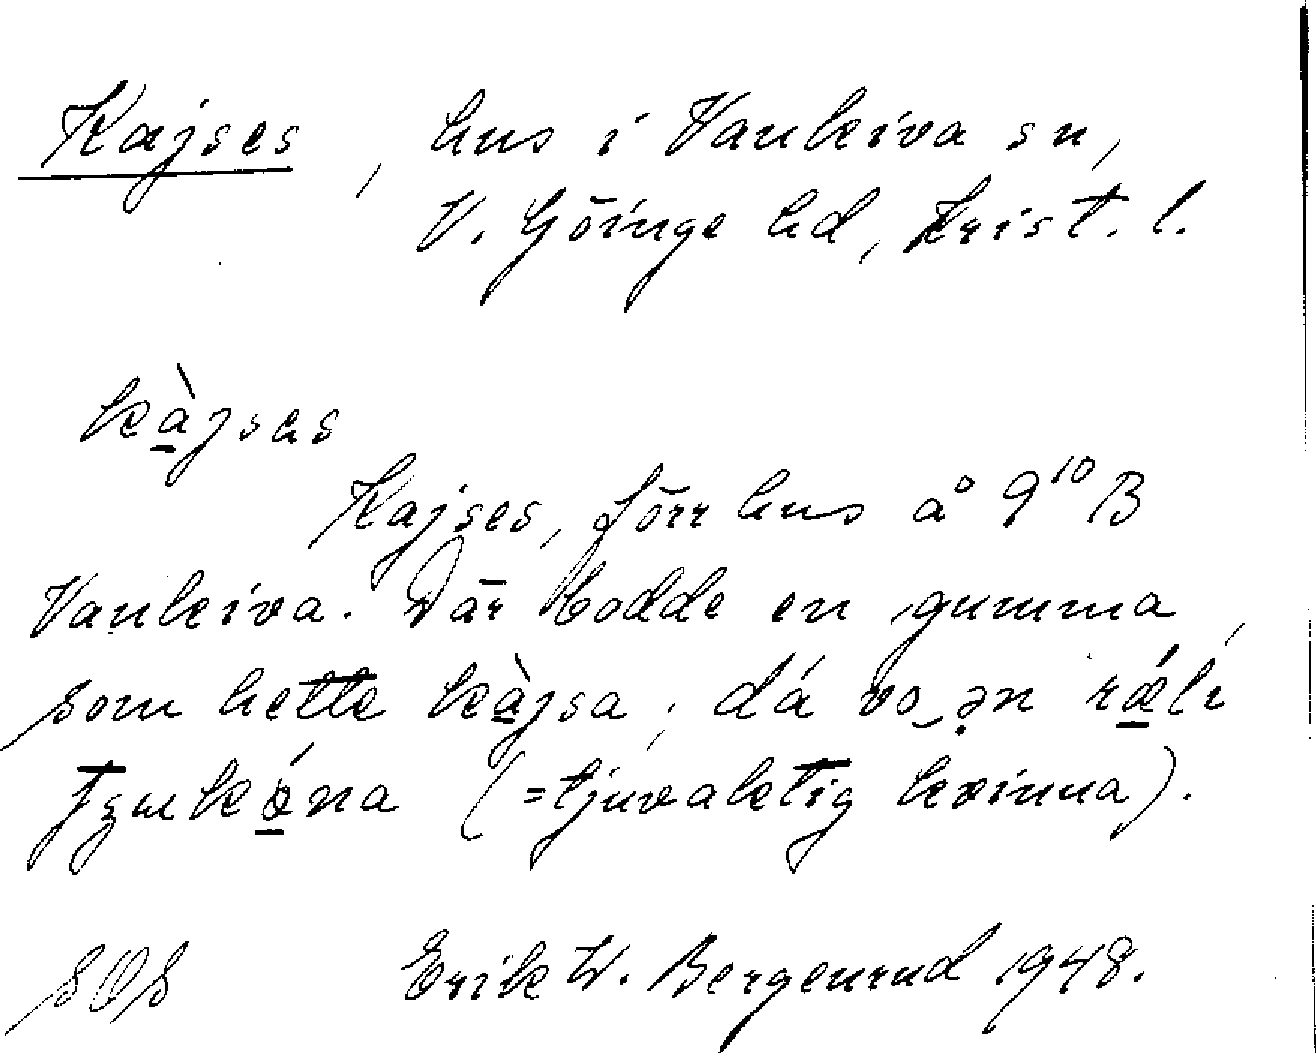 Kajses, hus i Vankiva sn,
V. Göinge hd, Krist. l.
kàjses
Kajses, förr hus å 9¹⁰ B
Vankiva. Där bodde en gumma,
som hette kàjsa; dá vo_ən rǽli
kóna (=tjuvaktig kvinna).
SOS Erik W. Bergenrud 1948.